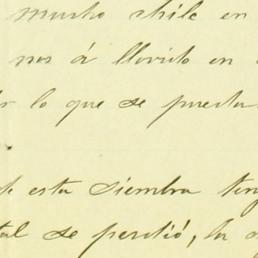 mucho chile en
nos á llovido en
lo que se puerta
esta siembra ten
tal se perdió, la